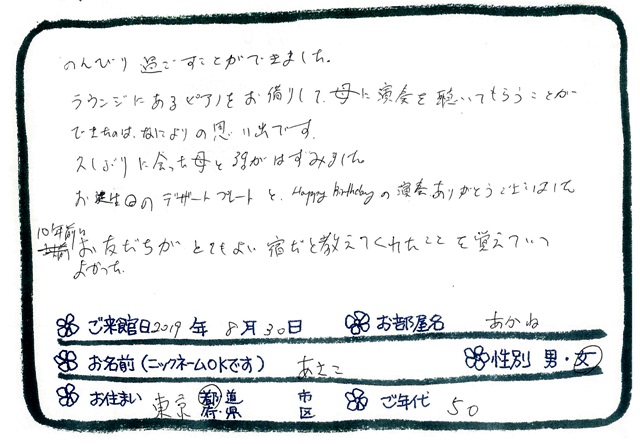 のんびり過ごすことができました。
ラウンジにあるピアノをお借りして、母に演奏を聴いてもらうことが
できたのは、なによりの思い出です。
久しぶりに会った母と話がはずみました。
お誕生日のデザートプレートと、Happy Birthdayの演奏ありがとうございました
10年前に
お友だちがとてもよい宿だと教えてくれたことを覚えていて
よかった。
ご来館日2019年 8月30日 お部屋名 あかね
お名前(ニックネームOKです) あさこ 性別 男・女
お住まい 東京 都道府・県 市区 ご年代 50